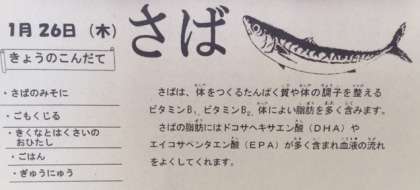 1月26日（木）
さば
きょうのこんだて
・さばのみそに
・ごもくじる
・きくなとはくさいの
おひたし
・ごはん
・ぎゅうにゅう
さばは、体をつくるたんぱく質や体の調子を整える
ビタミンB₁、ビタミンB₂、体によい脂肪を多く含みます。
さばの脂肪にはドコサヘキサエン酸（DHA）や
エイコサペンタエン酸（EPA）が多く含まれ血液の流れ
をよくしてくれます。